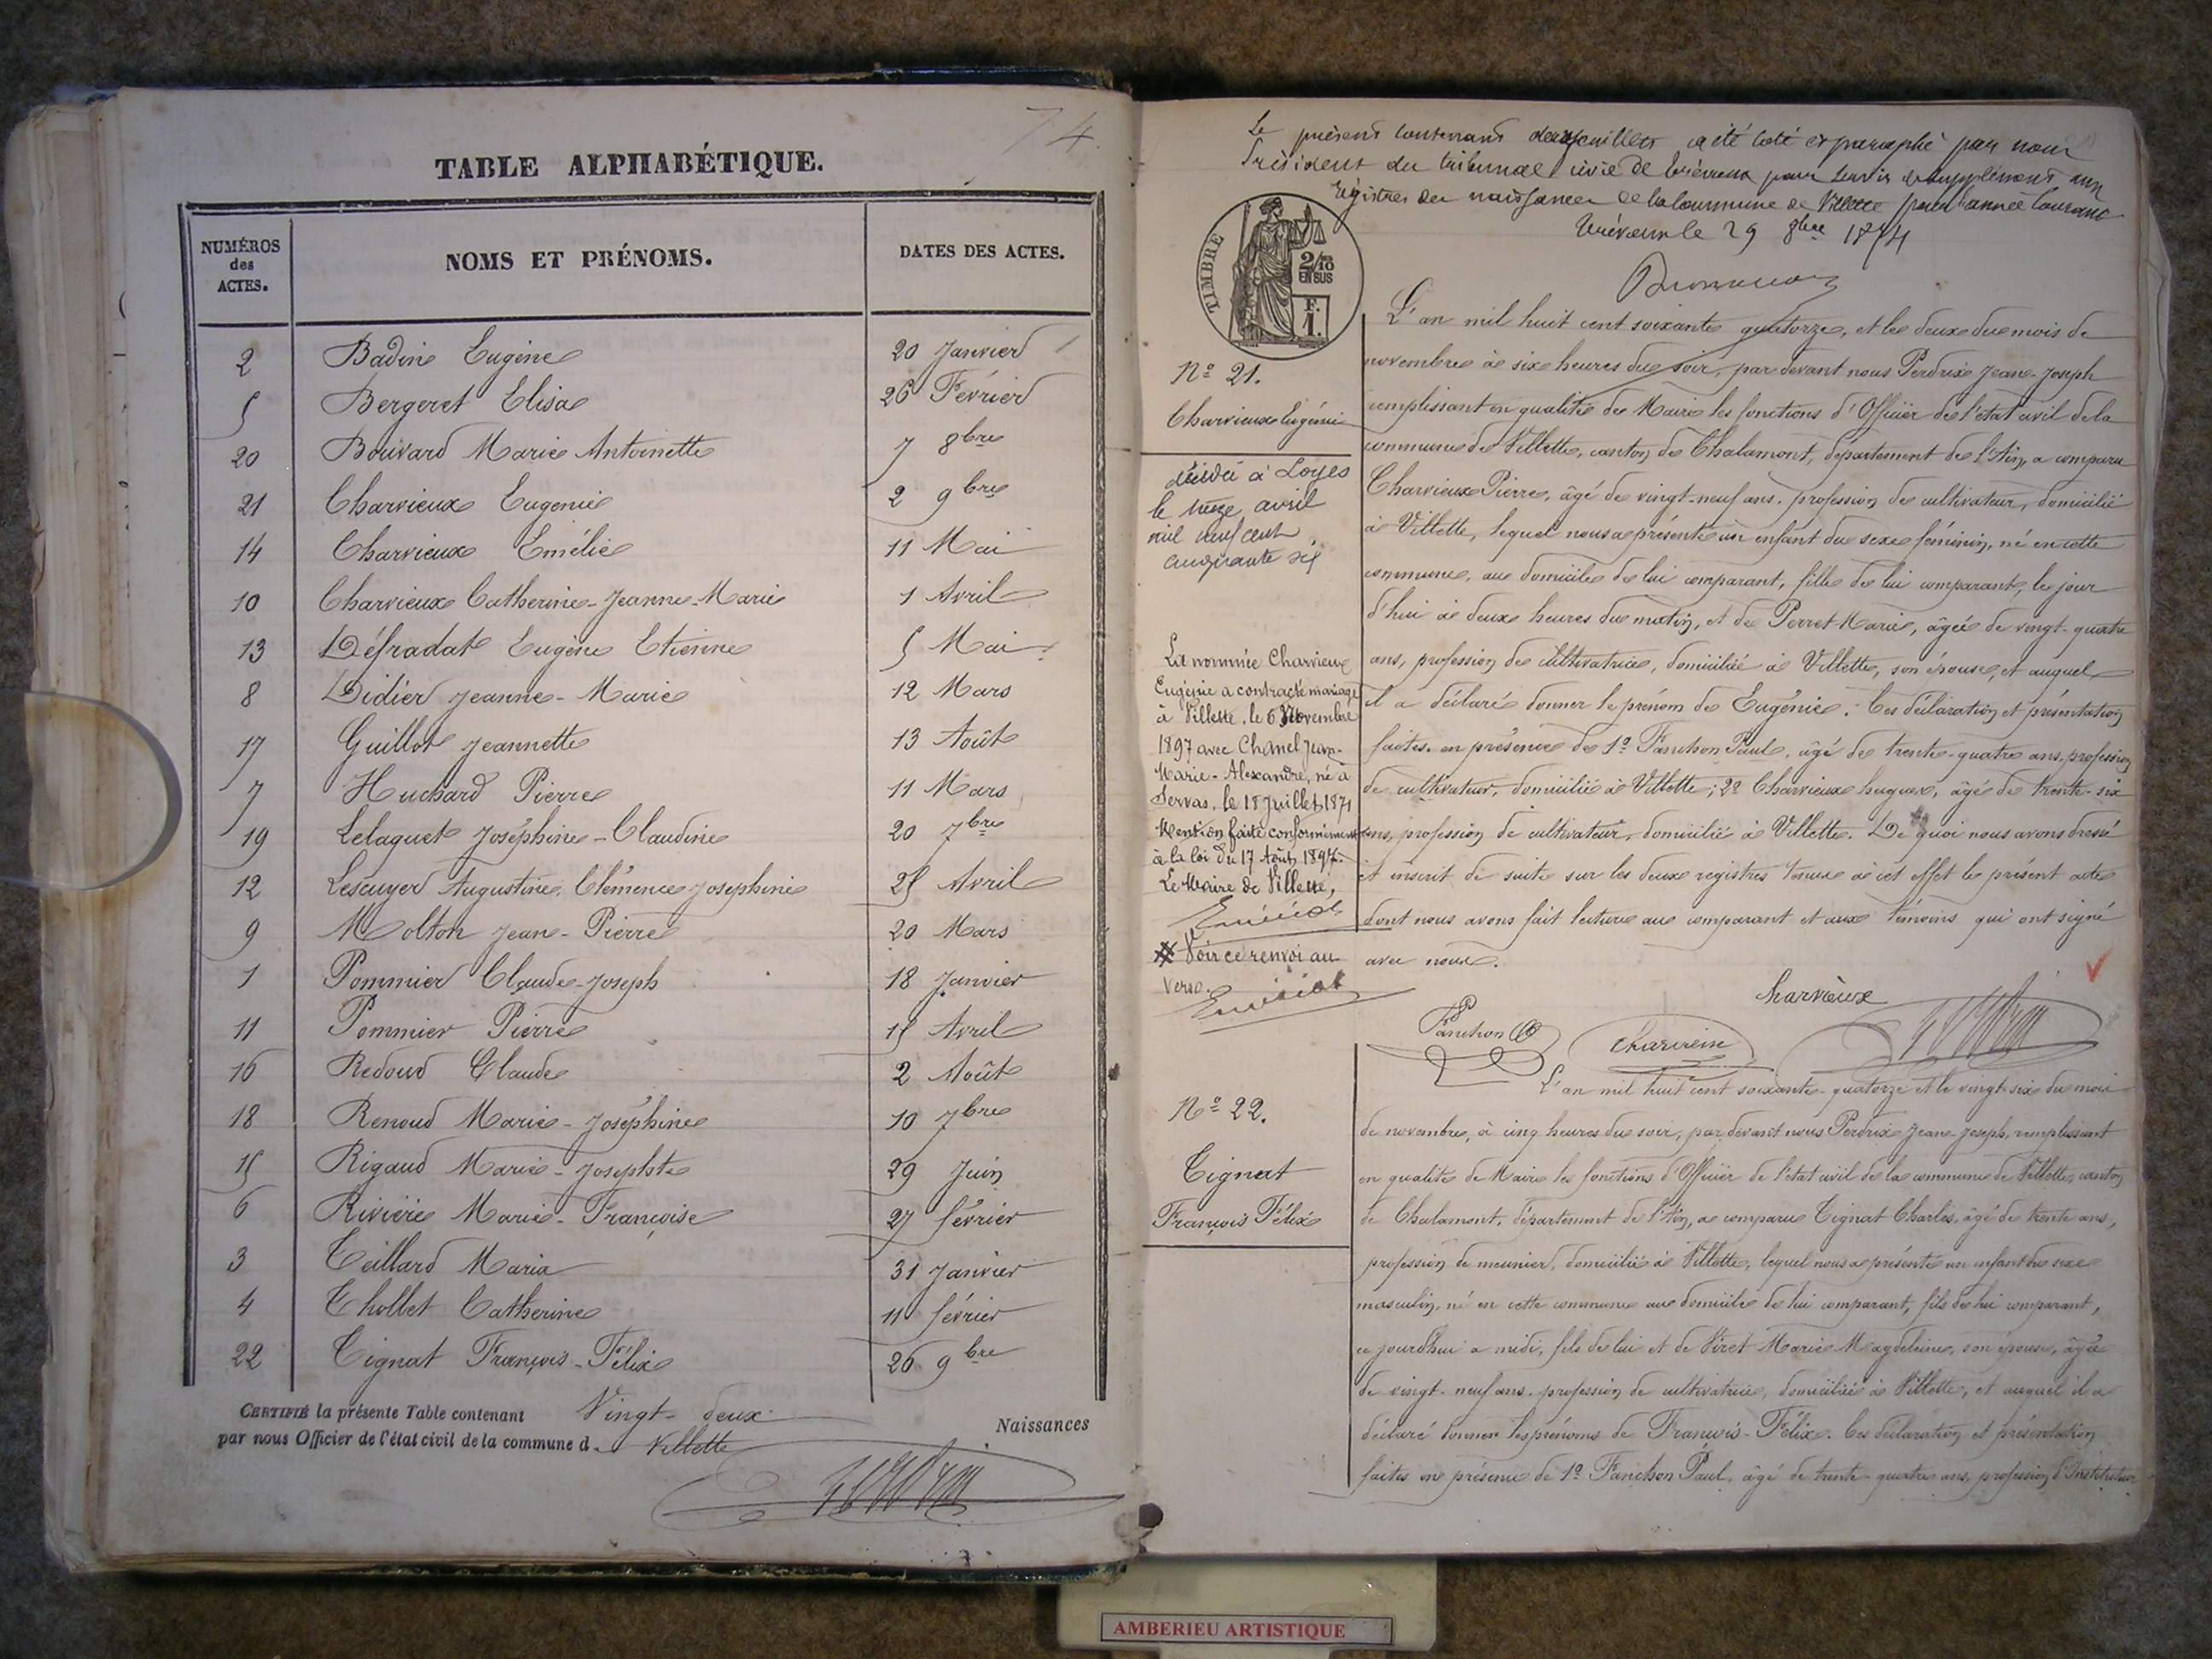 74
TABLE ALPHABÉTIQUE.
NUMÉROS des ACTES. NOMS ET PRÉNOMS. DATES DES ACTES.
2 Badin Eugène 20 Janvier
5 Bergeret Elisa 26 Février
20 Bouvard Marie Antoinette 7 8bre
21 Charvieux Eugenie 2 9bre
14 Charvieux Emélie 11 Mai
10 Charvieux Catherine-Jeanne-Marie 1 Avril
13 Défradat Eugène Etienne 5 Mai
8 Didier Jeanne-Marie 12 Mars
17 Guillot Jeannette 13 Août
7 Huchard Pierre 11 Mars
19 Lelaguet Joséphine-Claudine 20 7bre
12 Lescuyer Augustine Clémence Josephine 25 Avril
9 Molton Jean-Pierre 20 Mars
1 Pommier Claude-Joseph 18 Janvier
11 Pommier Pierre 15 Avril
16 Redoud Claude 2 Août
18 Renoud Marie-Joséphine 10 7bre
15 Rigaud Marie-Josephte 29 Juin
6 Rivière Marie-Françoise 27 février
3 Teillard Maria 31 Janvier
4 Thollet Catherine 11 février
22 Tignat François-Félix 26 9bre
CERTIFIÉ la présente Table contenant Vingt-deux Naissances
par nous Officier de l'état civil de la commune d Villette
Le présent contenant deux feuillets a été coté et paraphé par nous
Président du tribunal civil de Trévoux pour servir de supplément aux
Régistres des naissances de la Commune de Villette pour l'année courante
Trévoux le 29 8bre 1874
TIMBRE
2/10
EN SUS
F.
1.
No 21.
Charvieux Eugénie
décédée à Loyes
le treize avril
mil neuf cent
cinquante six
La nommée Charvieux
Eugénie a contracté mariage
à Villette, le 6 Novembre
1897 avec Chanel Jean-
Marie-Alexandre, né à
Servas, le 18 Juillet 1871
Mention faite conformément
à la loi du 17 Août 1897.
Le Maire de Villette,
Voir ce renvoi au
verso.
L'an mil huit cent soixante quatorze, et le deux du mois de
novembre à six heures du soir, par devant nous Perdrix Jean-Joseph
remplissant en qualité de Maire les fonctions d'Officier de l'état civil de la
commune de Villette, canton de Chalamont, département de l'Ain, a comparu
Charvieux Pierre, âgé de vingt-neuf ans, profession de cultivateur, domicilié
à Villette, lequel nous a présenté un enfant du sexe féminin, né en cette
commune, au domicile de lui comparant, fille de lui comparant, le jour
d'hui à deux heures du matin, et de Perret Marie, âgée de vingt-quatre
ans, profession de cultivatrice, domiciliée à Villette, son épouse, et auquel
il a déclaré donner le prénom de Eugénie. Ces déclaration et présentation
faites en présence de 1o Fanchon Paul, âgé de trente-quatre ans, profession
de cultivateur, domicilié à Villette; 2o Charvieux hugues, âgé de trente-six
ans, profession de cultivateur, domicilié à Villette. De quoi nous avons dressé
et inscrit de suite sur les deux registres tenus à cet effet le présent acte
dont nous avons fait lecture au comparant et aux témoins qui ont signé
avec nous.
Charvieux
Fanchon Charvieux
No 22.
Tignat
François Félix
L'an mil huit cent soixante-quatorze et le vingt-six du mois
de novembre, à cinq heures du soir, par devant nous Perdrix Jean-Joseph, remplissant
en qualité de Maire les fonctions d'Officier de l'état civil de la commune de Villette, canton
de Chalamont, département de l'Ain, a comparu Tignat Charles, âgé de trente ans,
profession de meunier, domicilié à Villette, lequel nous a présenté un enfant du sexe
masculin, né en cette commune au domicile de lui comparant, fils de lui comparant,
ce jourd'hui a midi, fils de lui et de Viret Marie Magdeleine, son épouse, âgée
de vingt-neuf ans, profession de cultivatrice, domiciliée à Villette, et auquel il a
déclaré donner les prénoms de François-Félix. Ces déclaration et présentation
faites en présence de 1o Fanchon Paul, âgé de trente-quatre ans, profession d'Instituteur
AMBERIEU ARTISTIQUE